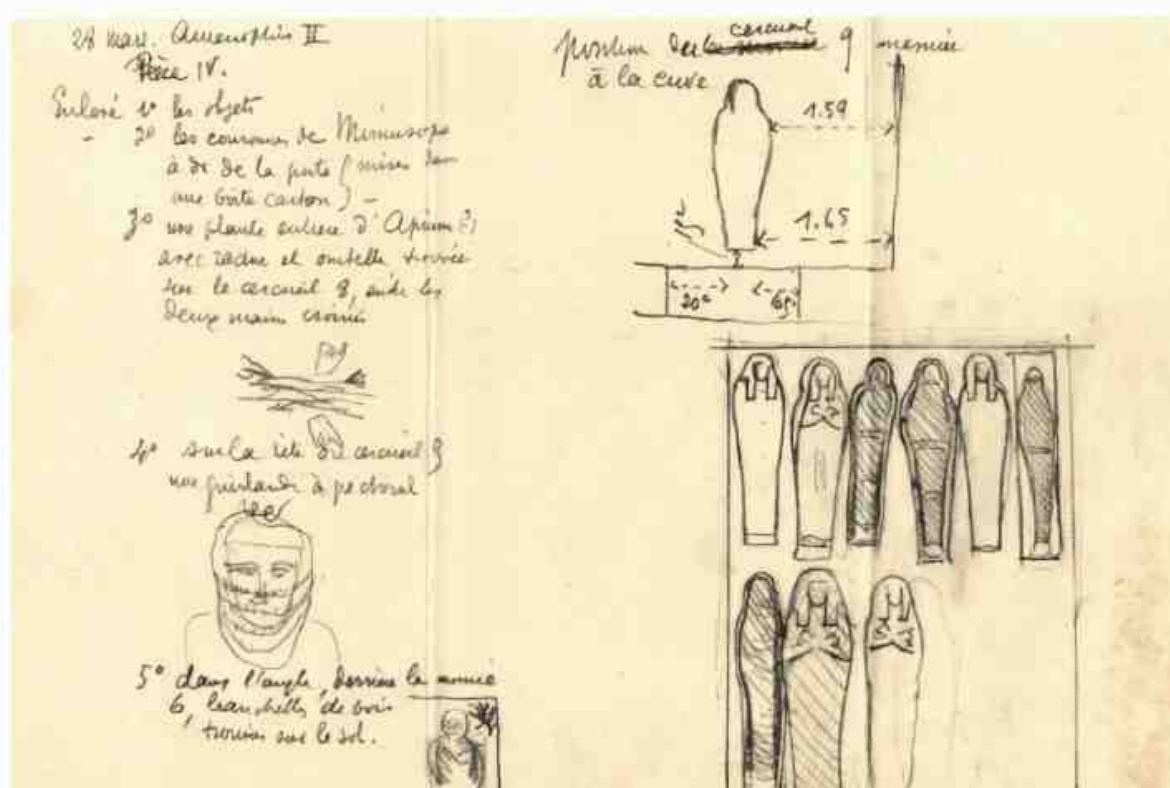 28 mars. Amenophis II
Pièce IV.
Enlevé 1º les objets
- 2º les couronnes de Mimusops
à dr de la porte (mises dans
une boîte carton) -
3º une plante entière d'Apium (?)
avec racine et ombelle trouvée
sur le cercueil 8, entre les
deux mains croisées
4º sur la tête du cercueil 9
une guirlande à pectoral
5º dans l'angle, derrière la momie
6, planchettes de bois
trouvées sur le sol.
Position du cercueil 9
à la cuve
momie
1.59
1.65
20c